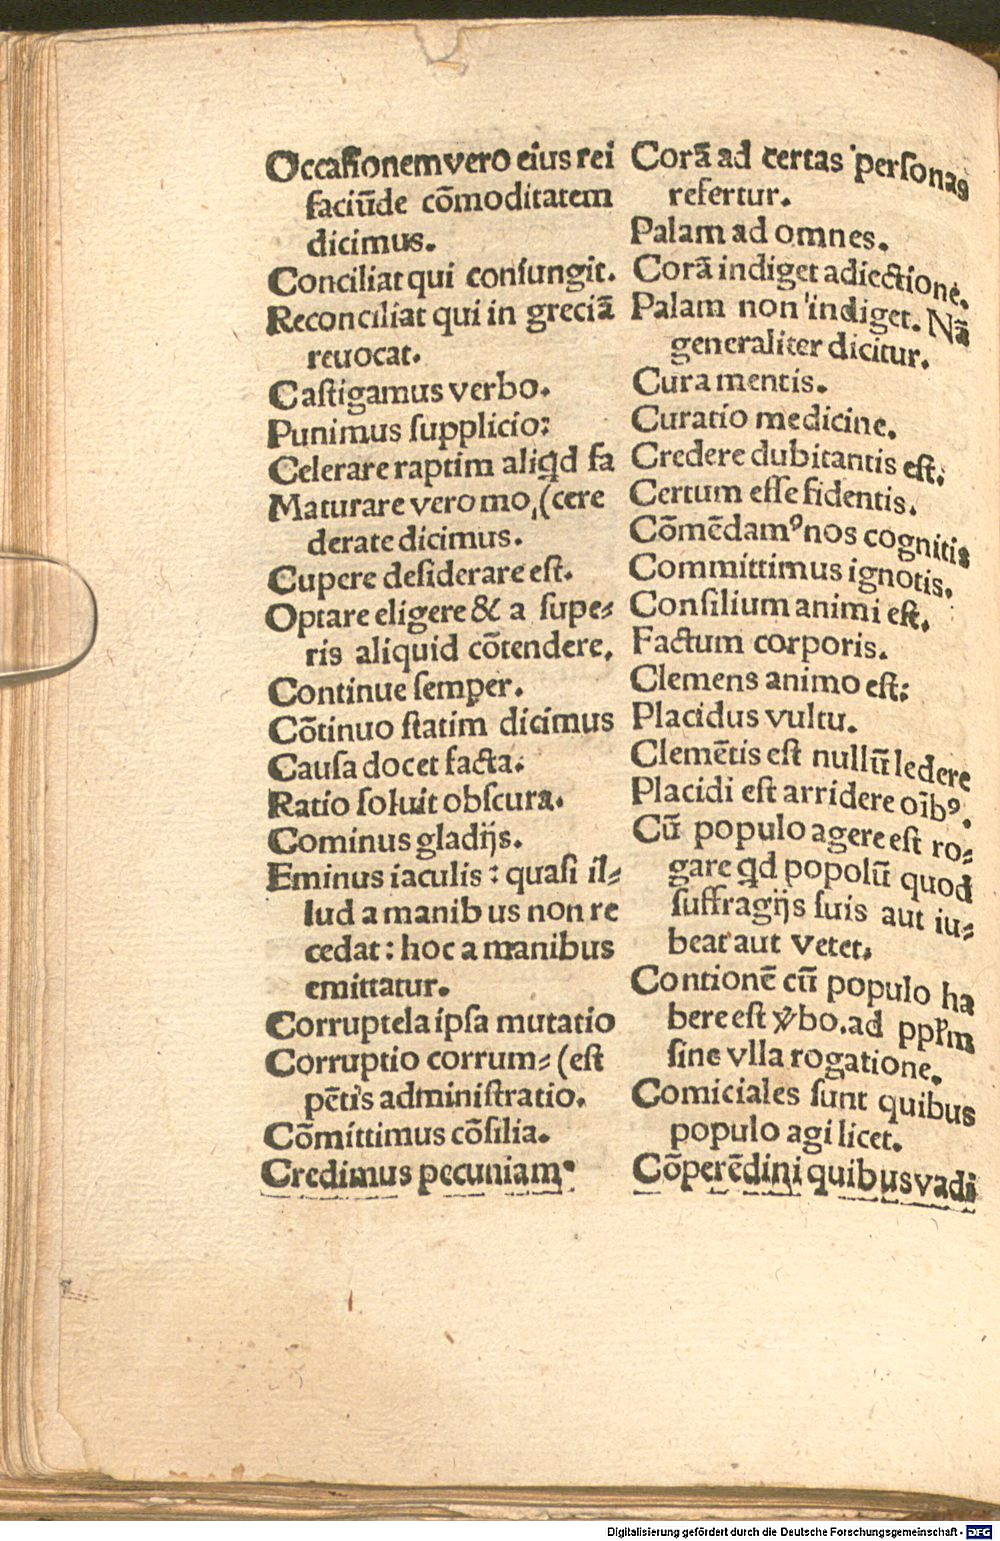 Occaſionem vero eius rei
faciūde cōmoditatem
dicimus.
Conciliat qui coniungit.
Reconciliat qui in greciā
reuocat.
Caſtigamus verbo.
Punimus ſupplicio:
Celerare raptim aliqd fa
Maturare vero mo, (cere
derate dicimus.
Cupere desiderare eſt.
Optare eligere & a ſupe⸗
ris aliquid cōtendere,
Continue ſemper.
Cōtinuo ſtatim dicimus
Cauſa docet facta:
Ratio ſoluit obſcura.
Cominus gladijs.
Eminus iaculis: quasi il⸗
lud a manibus non re
cedat: hoc a manibus
emittatur.
Corruptela ipſa mutatio
Corruptio corrum⸗ (eſt
pētis adminiſtratio.
Cōmittimus cōſilia.
Credimus pecuniam.
Corā ad certas perſonas
refertur.
Palam ad omnes.
Corā indiget adiectione.
Palam non indiget. Nā
generaliter dicitur.
Cura mentis.
Curatio medicine.
Credere dubitantis eſt:
Certum eſſe fidentis.
Cōmēdamꝰ nos cognitis
Committimus ignotis.
Consilium animi eſt.
Factum corporis.
Clemens animo eſt:
Placidus vultu.
Clemētis eſt nullū ledere
Placidi eſt arridere oībꝰ.
Cū populo agere eſt ro⸗
gare qd popolū quod
ſuffragijs ſuis aut iu⸗
beat aut vetet.
Contionē cū populo ha
bere eſt ꝟbo. ad pplm
ſine vlla rogatione.
Comiciales ſunt quibus
populo agi licet.
Cōperēdini quibus vadi
Digitalisierung gefördert durch die Deutsche Forschungsgemeinschaft - DFG